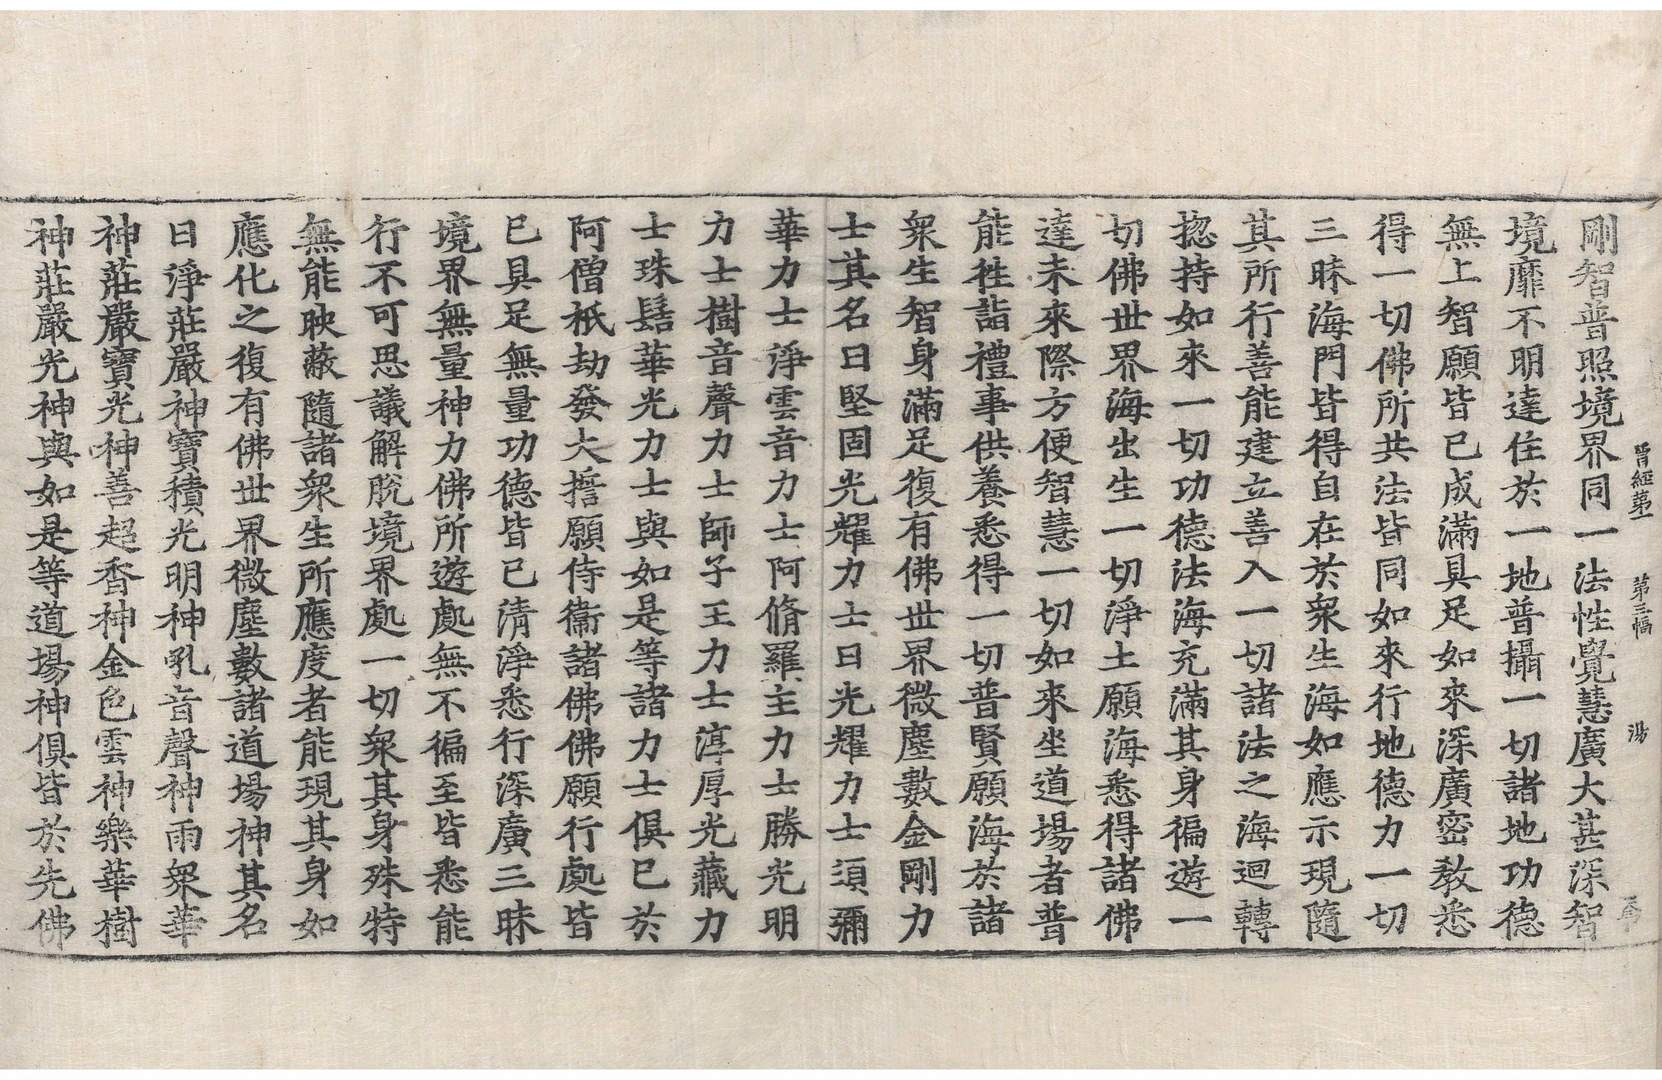 晋經第一　第三幅　湯
剛智普照境界同一法性覺慧廣大甚深智
境靡不明達住於一地普攝一切諸地功德
無上智願皆已成滿具足如來深廣密教悉
得一切佛所共法皆同如來行地德力一切
三昧海門皆得自在於衆生海如應示現隨
其所行善能建立善入一切諸法之海迴轉
揔持如來一切功德法海充滿其身徧遊一
切佛世界海出生一切淨土願海悉得諸佛
達未來際方便智慧一切如來坐道場者普
能牲詣禮事供養悉得一切普賢願海於諸
衆生智身滿足復有佛世界微塵數金剛力
士其名曰堅固光耀力士日光耀力士須彌
華力士淨雲音力士阿脩羅主力士勝光明
力士樹音聲力士師子王力士淳厚光藏力
士珠髻華光力士與如是等諸力士俱已於
阿僧祇劫發大擔願侍衞諸佛佛願行處皆
已具足無量功德皆已清淨悉行深廣三昧
境界無量神力佛所遊處無不徧至皆悉能
行不可思議解脫境界處一切衆其身殊特
無能映蔽隨諸衆生所應度者能現其身如
應化之復有佛世界微塵數諸道場神其名
曰淨莊嚴神寶積光明神吼音聲神雨衆華
神莊嚴寶光神善超香神金色雲神樂華樹
神莊嚴光神與如是等道場神俱皆於先佛